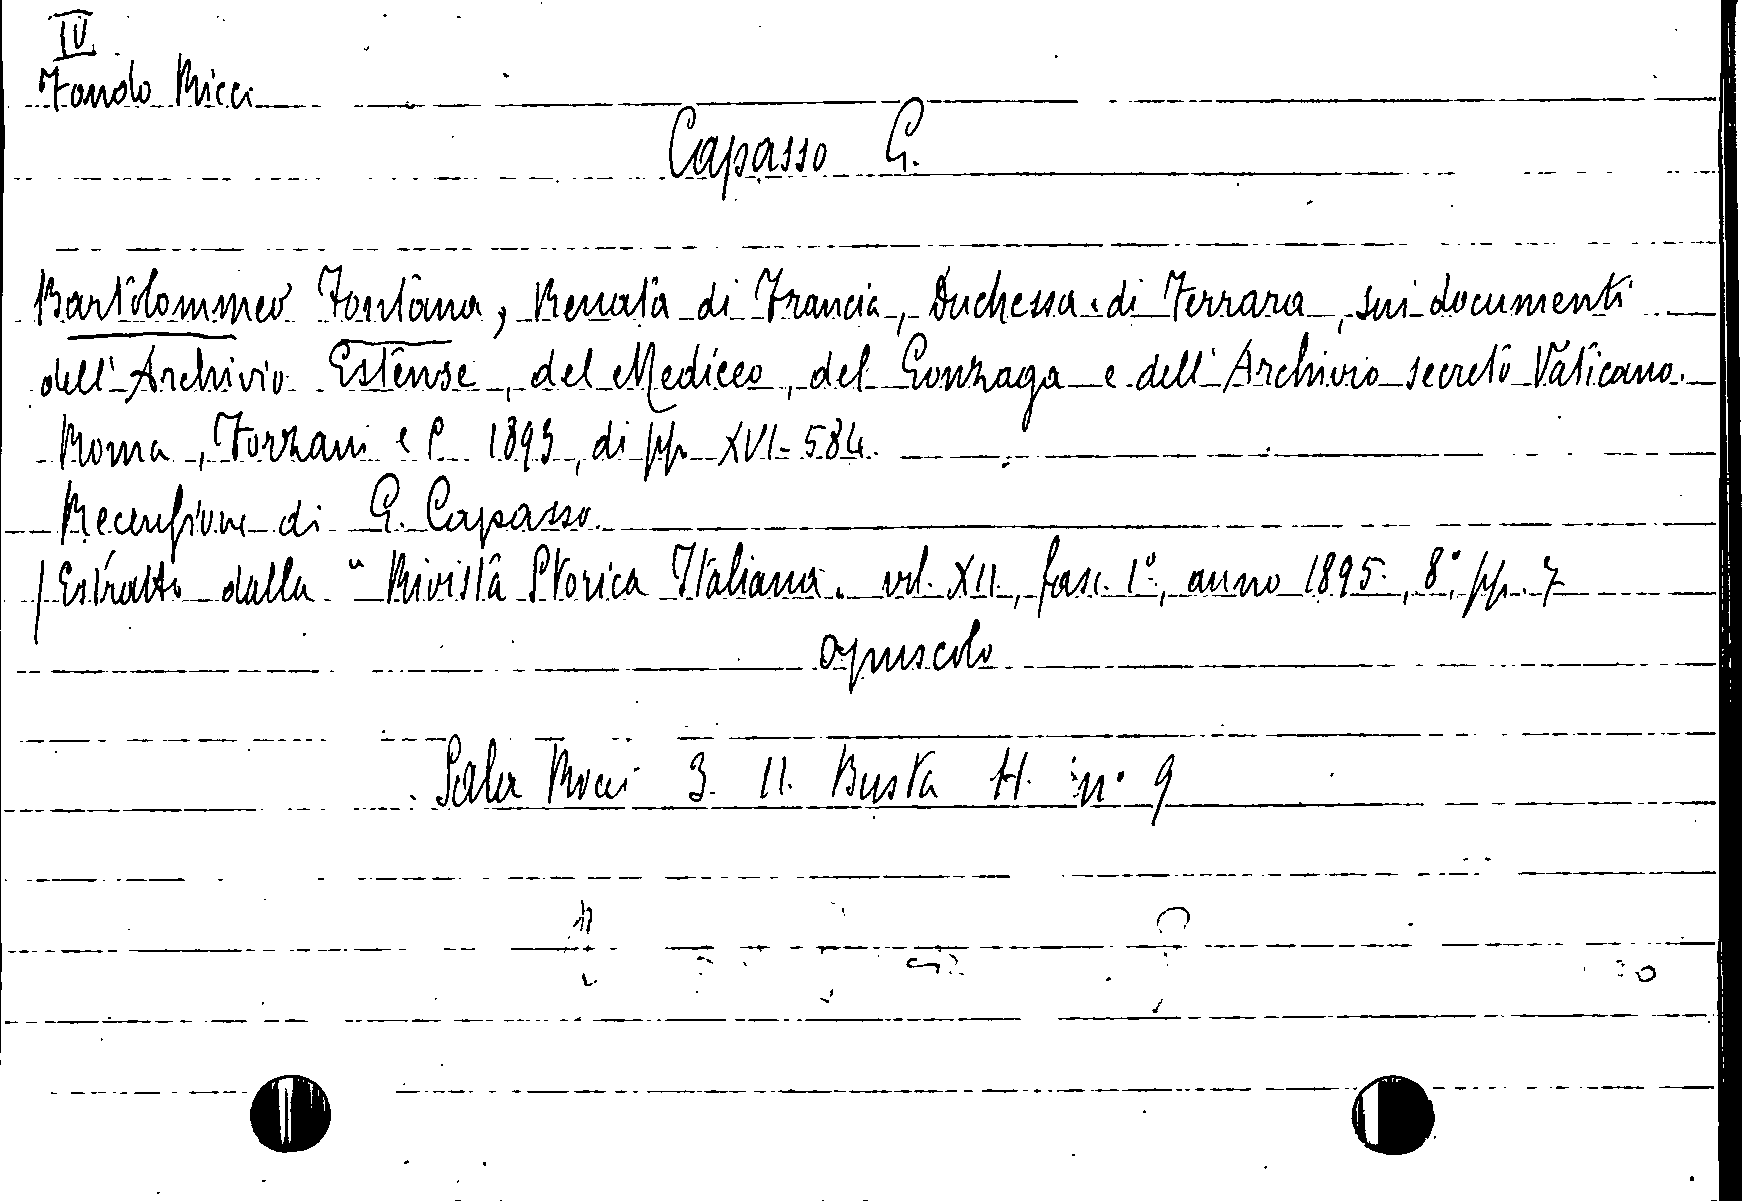 IV
Fondo Ricci
Capasso G.
Bartolommeo Fontana, Renata di Francia, Duchessa di Ferrara, sui documenti
dell'Archivio Estense, del Mediceo, del Gonzaga e dell'Archivio secreto Vaticano.
Roma, Forzani e C. 1893, di pp. XVI-584.
Recensione di G. Capasso.
/Estratto dalla "Rivista Storica Italiana. vol. XII, fasc. 1°, anno 1895., 8°, pp. 7
opuscolo
Sala Ricci 3. 11. Busta H. n° 9